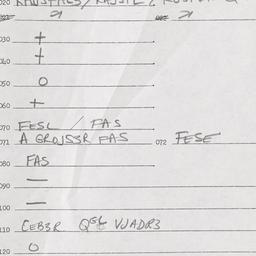 030 +
040 +
050 O
060 +
070 FESL / FAS
071 A GROJS3R FAS 072 FESE
080 FAS
090 —
100 —
110 CEB3R QGL VJADR3
120 O